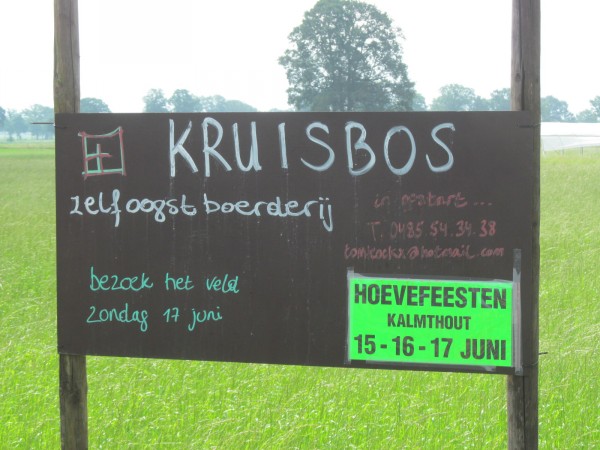 KRUISBOS
zelfoogstboerderij
in opstart...
T. 0485 54.34.38
@hotmail.com
bezoek het veld
zondag 17 juni
HOEVEFEESTEN
KALMTHOUT
15-16-17 JUNI